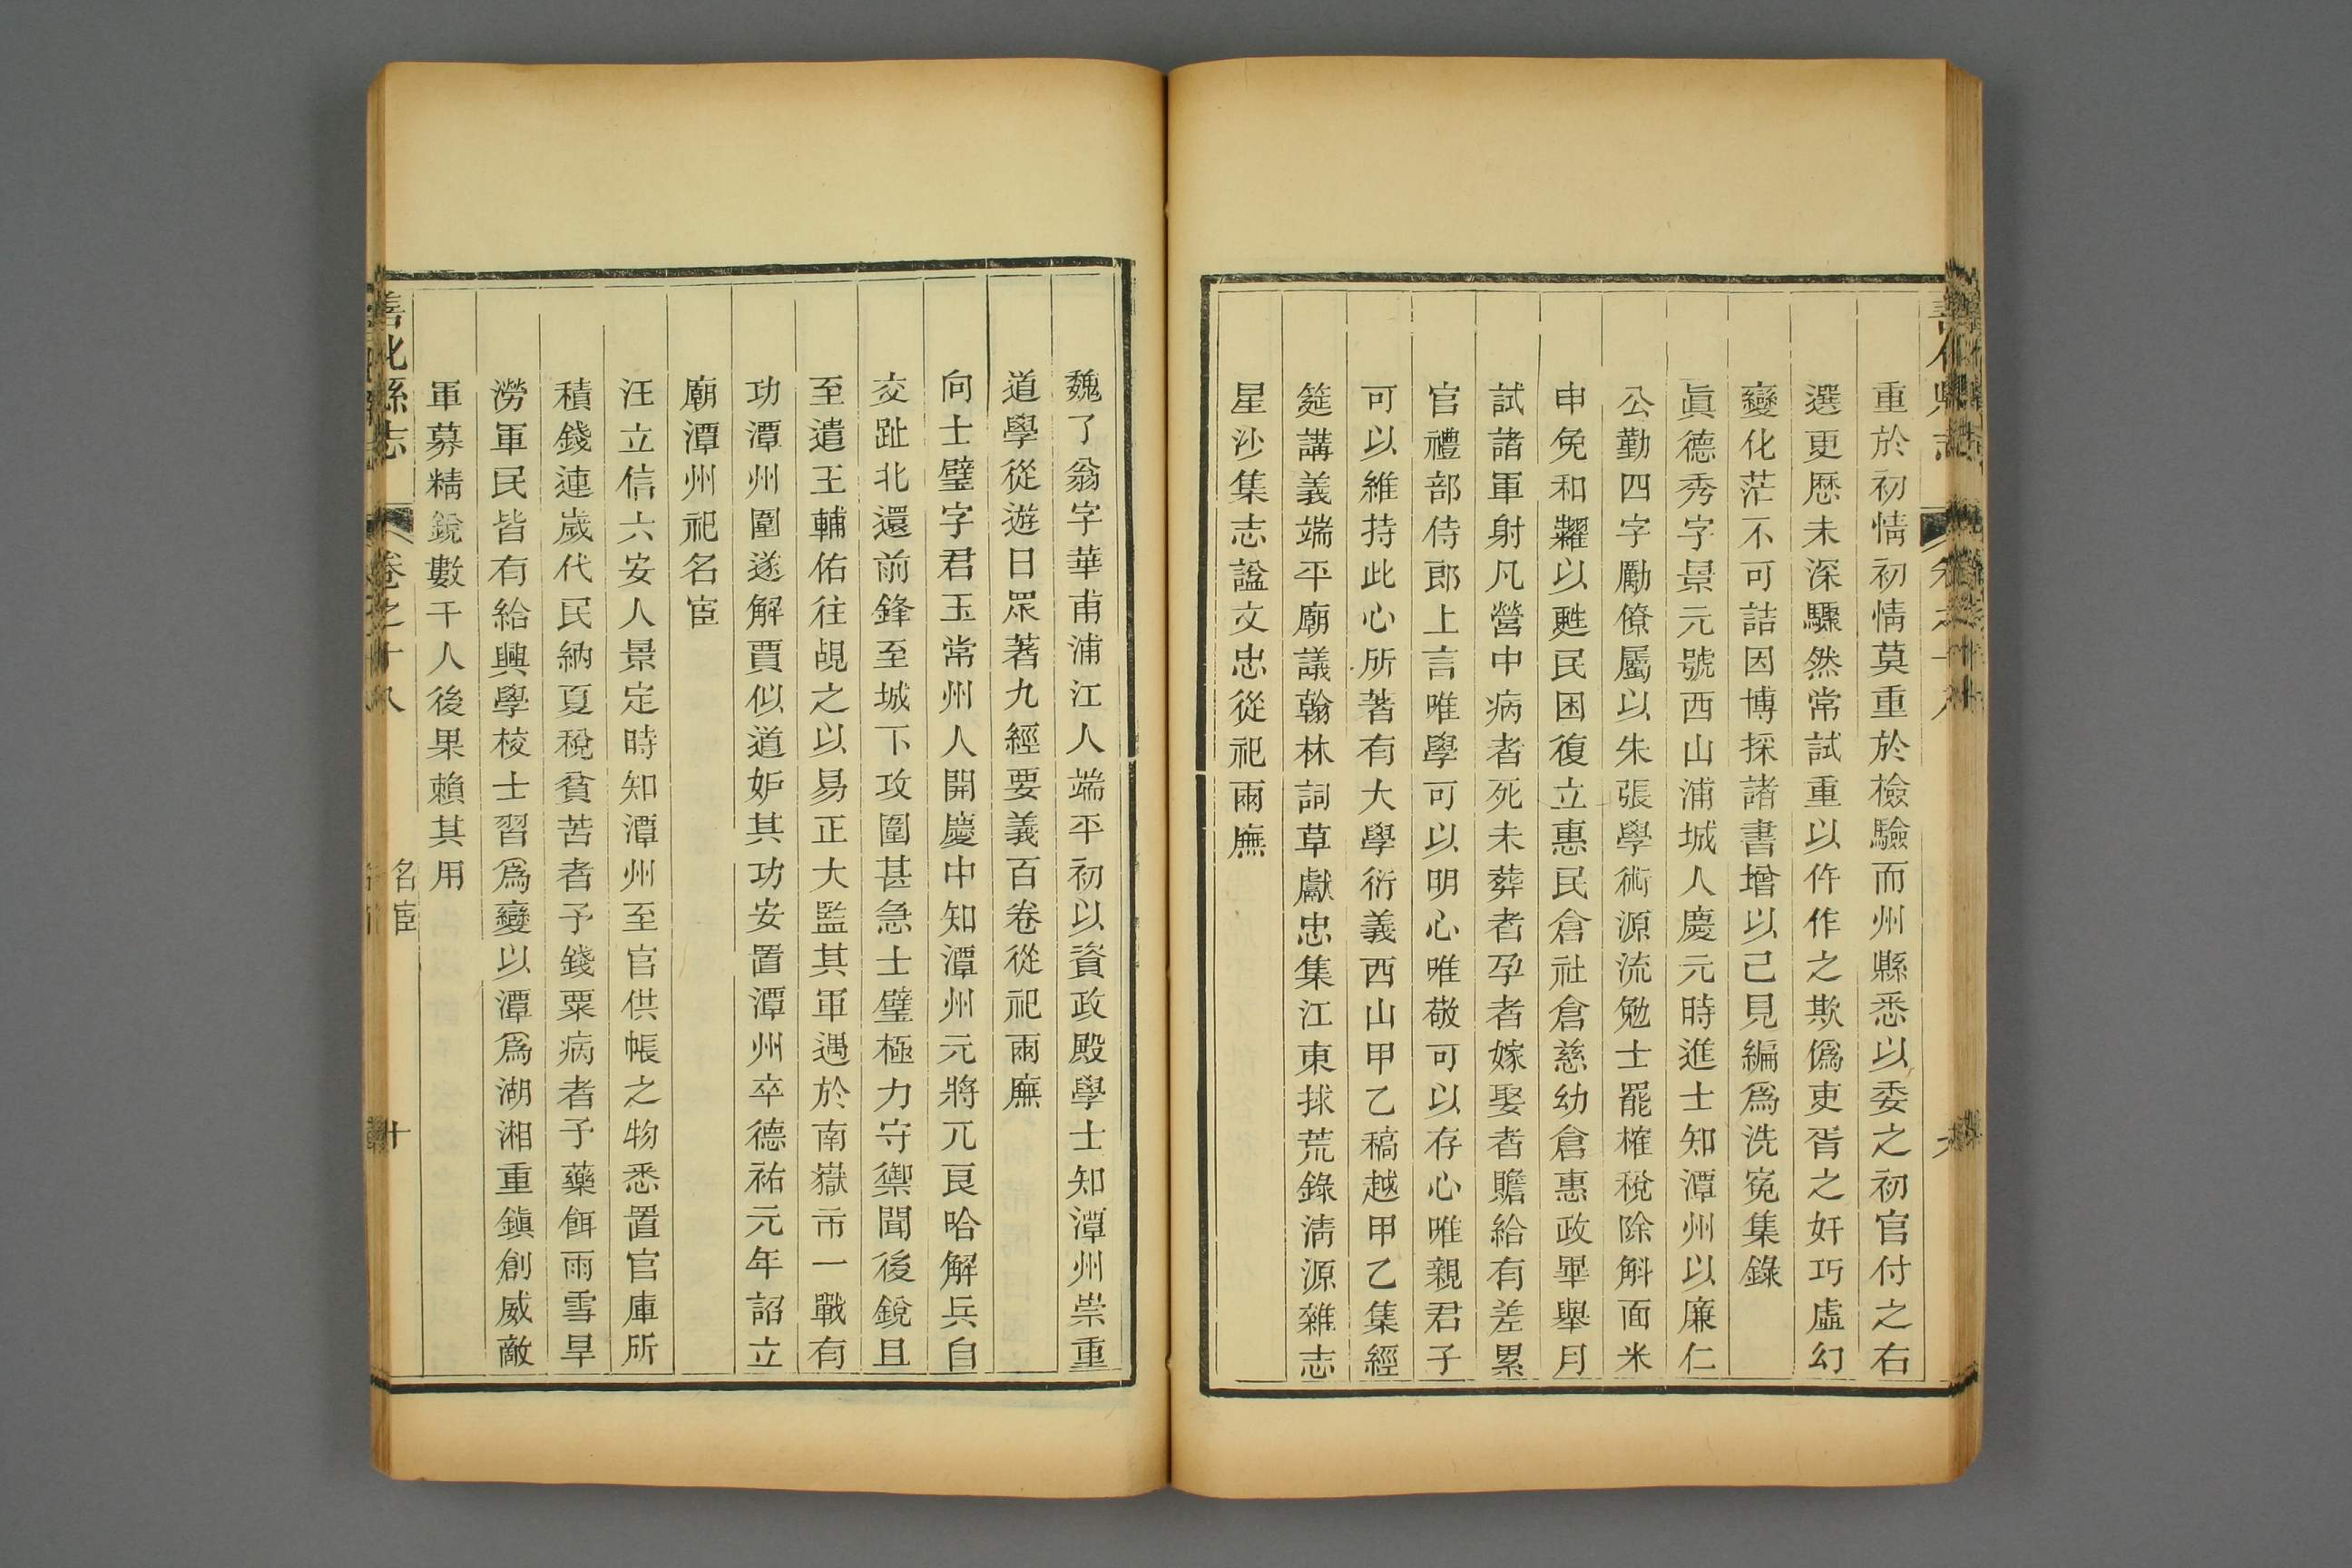 重於初情初情莫重於檢驗而州縣悉以委之初官付之右
選更歷未深驟然常試重以仵作之欺僞吏胥之奸巧虛幻
變化茫不可詰因博採諸書增以己見編爲洗寃集錄
眞德秀字景元號西山浦城人慶元時進士知潭州以廉仁
公勤四字勵僚屬以朱張學術源流勉士罷榷稅除斛面米
申免和糶以甦民困復立惠民倉社倉慈幼倉惠政畢舉月
試諸軍射凡營中病者死未葬者孕者嫁娶者贍給有差累
官禮部侍郎上言唯學可以明心唯敬可以存心唯親君子
可以維持此心所著有大學衍義西山甲乙稿越甲乙集經
筵講義端平廟議翰林詞草獻忠集江東捄荒錄淸源雜志
星沙集志諡文忠從祀兩廡
魏了翁字華甫浦江人端平初以資政殿學士知潭州崇重
道學從遊日眾著九經要義百卷從祀兩廡
向士璧字君玉常州人開慶中知潭州元將兀良哈解兵自
交趾北還前鋒至城下攻圍甚急士璧極力守禦聞後銳且
至遣王輔佑往覘之以易正大監其軍遇於南嶽市一戰有
功潭州圍遂解賈似道妒其功安置潭州卒德祐元年詔立
廟潭州祀名宦
汪立信六安人景定時知潭州至官供帳之物悉置官庫所
積錢連歲代民納夏稅貧苦者予錢粟病者予藥餌雨雪旱
澇軍民皆有給興學校士習爲變以潭爲湖湘重鎭創威敵
軍募精銳數千人後果賴其用
善化縣志 卷之十八 名宦 十